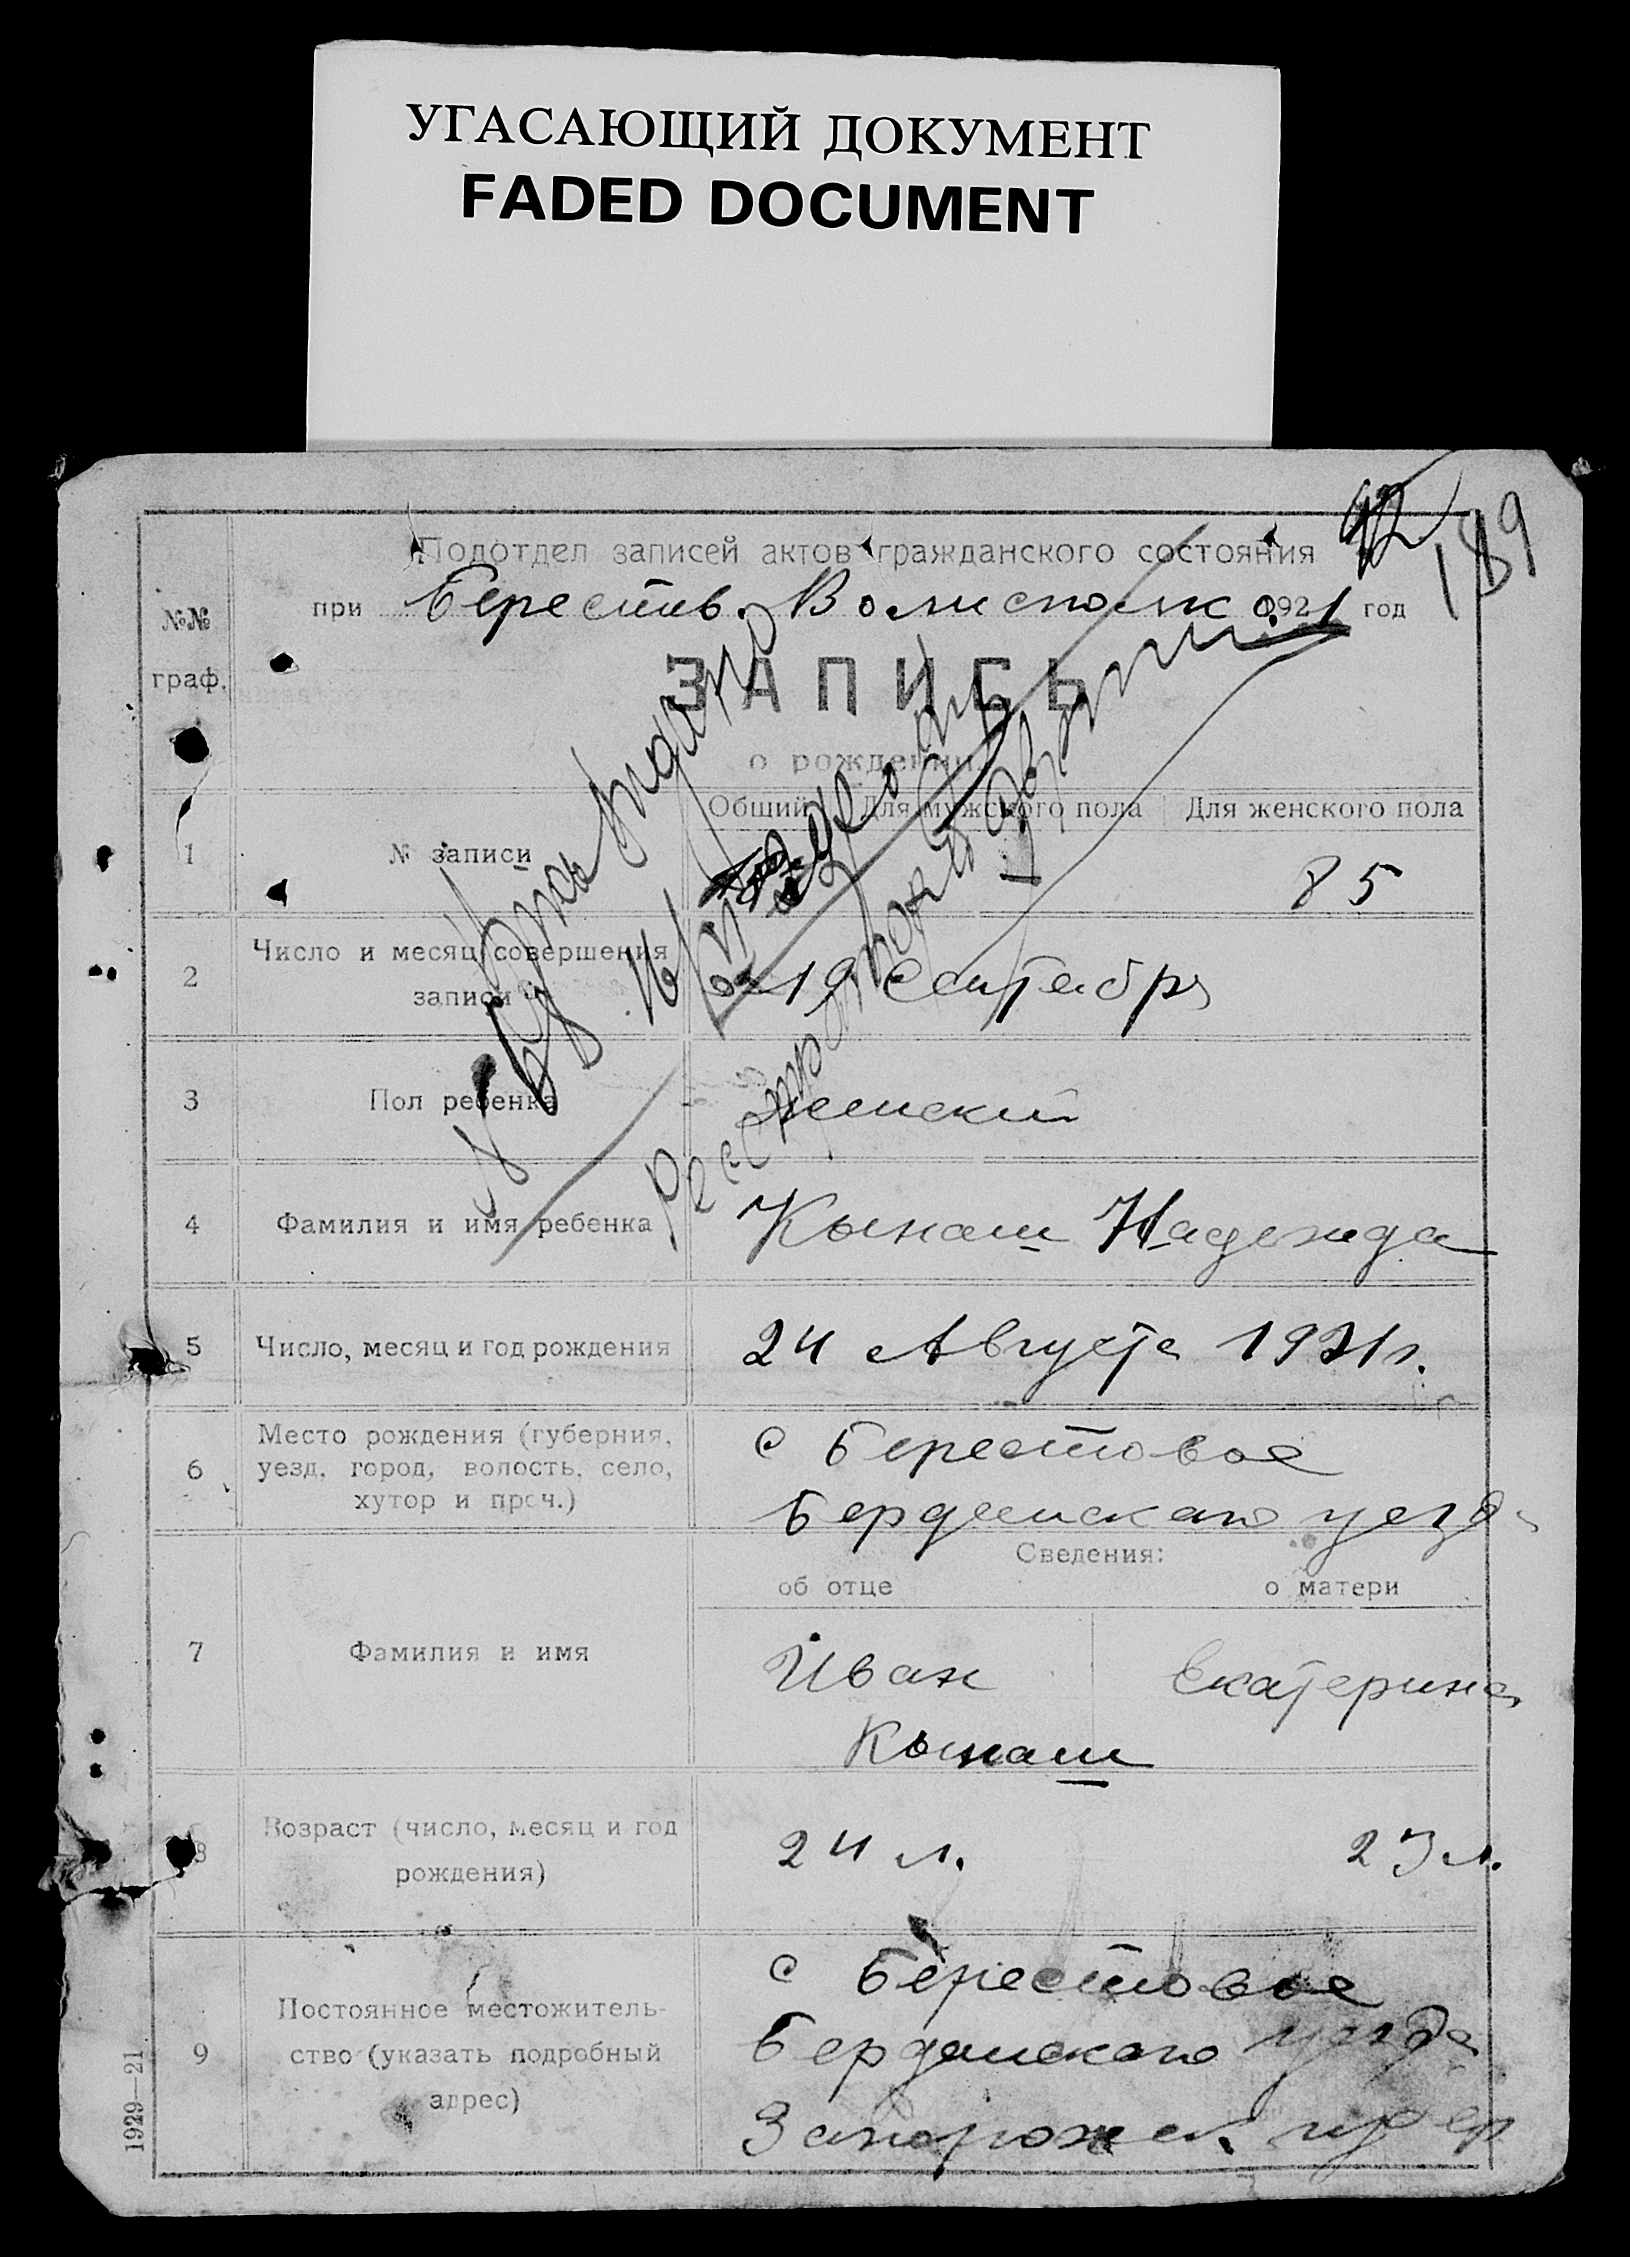 УГАСАЮЩИЙ ДОКУМЕНТ
FADED DOCUMENT
189
Подотдел записей актов гражданского состояния
при Берестов. Волисполк 1921 год
№№ граф.
ЗАПИСЬ
о рождении.
Общий Для мужского пола Для женского пола
1 № записи 85
2 Число и месяц совершения записи 19 Сентября
3 Пол ребенка женский
4 Фамилия и имя ребенка Кынаш Надежда
5 Число, месяц и год рождения 24 Августа 1921 г.
6 Место рождения (губерния,
уезд, город, волость, село,
хутор и проч.)
с Берестовое
Бердянскаго уезда
Сведения:
об отце о матери
7 Фамилия и имя
Иван Екатерина
Кынаш
8 Возраст (число, месяц и год
рождения)
24 л. 23 л.
9 Постоянное местожитель-
ство (указать подробный
адрес)
с Берестовое
Бердянскаго уезда
Запорожск. губер
1929—21